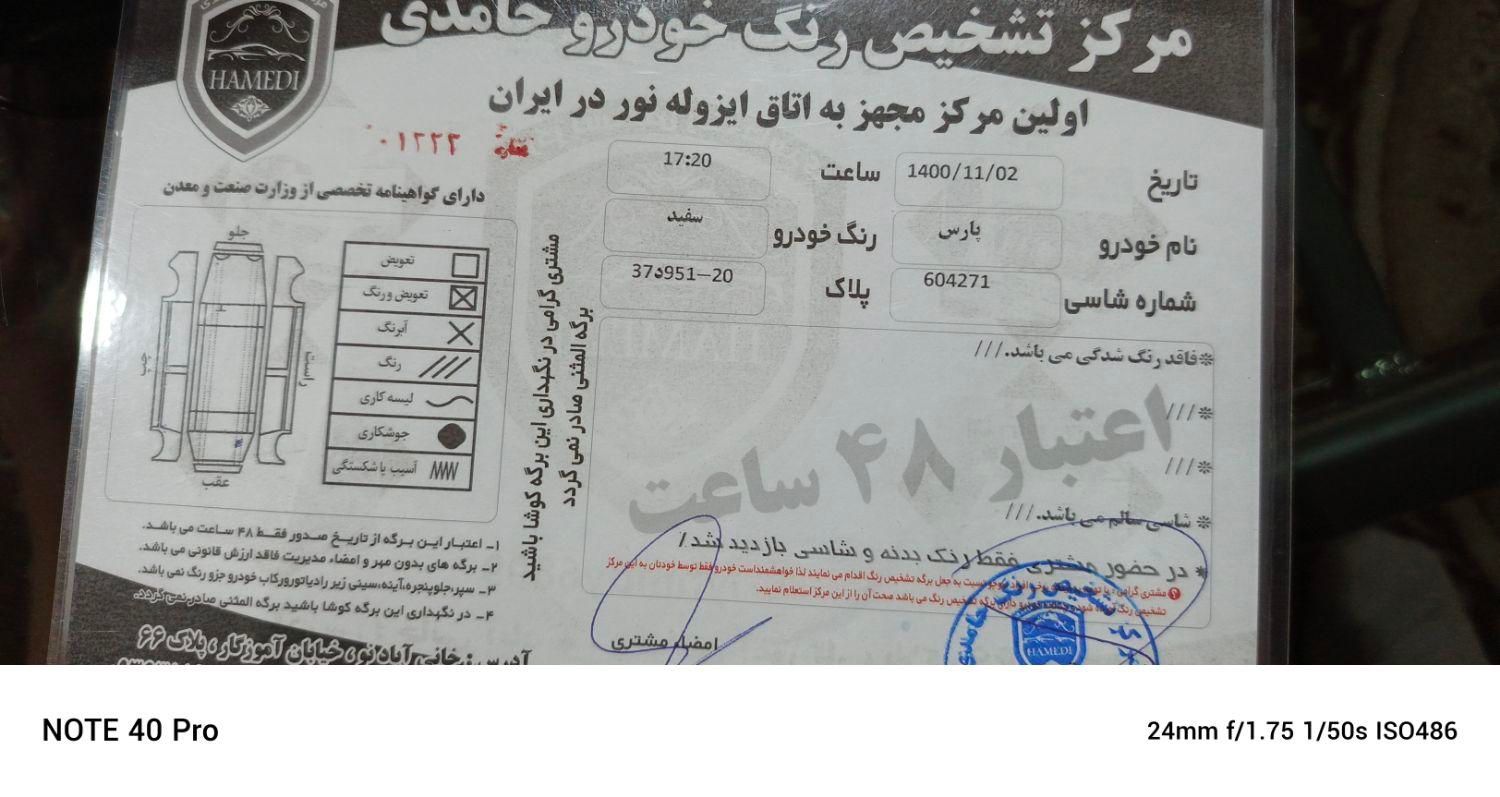 مرکز تشخیص رنگ خودرو حامدی
HAMEDI
اولین مرکز مجهز به اتاق ایزوله نور در ایران
شماره ۰۱۲۲۲
دارای گواهینامه تخصصی از وزارت صنعت و معدن
تاریخ 1400/11/02 ساعت 17:20
نام خودرو پارس رنگ خودرو سفید
شماره شاسی 604271 پلاک 20–951د37
جلو
راست
چپ
عقب
تعویض
تعویض و رنگ
آبرنگ
رنگ
لیسه کاری
جوشکاری
آسیب یا شکستگی
مشتری گرامی در نگهداری این برگه کوشا باشید
برگه المثنی صادر نمی گردد
*فاقد رنگ شدگی می باشد.///
*///
*///
* شاسی سالم می باشد.///
اعتبار ۴۸ ساعت
* در حضور مشتری فقط رنگ بدنه و شاسی بازدید شد/
مشتری گرامی، با توجه به نسبت به جعل برگه تشخیص رنگ اقدام می نمایند لذا خواهشمنداست خودرو فقط توسط خودتان به این مرکز
تشخیص رنگ برگه تشخیص رنگ می باشد صحت آن را از این مرکز استعلام نمایید.
امضاء مشتری
تشخیص رنگ
حامدی
HAMEDI
۱- اعتبار این برگه از تاریخ صدور فقط ۴۸ ساعت می باشد.
۲- برگه های بدون مهر و امضاء مدیریت فاقد ارزش قانونی می باشد.
۳- سپر،جلوپنجره،آینه،سینی زیر رادیاتورورکاب خودرو جزو رنگ نمی باشد.
۴- در نگهداری این برگه کوشا باشید برگه المثنی صادر نمی گردد.
آدرس: خانی آباد نو، خیابان آموزگار، پلاک ۶۶
NOTE 40 Pro
24mm f/1.75 1/50s ISO486